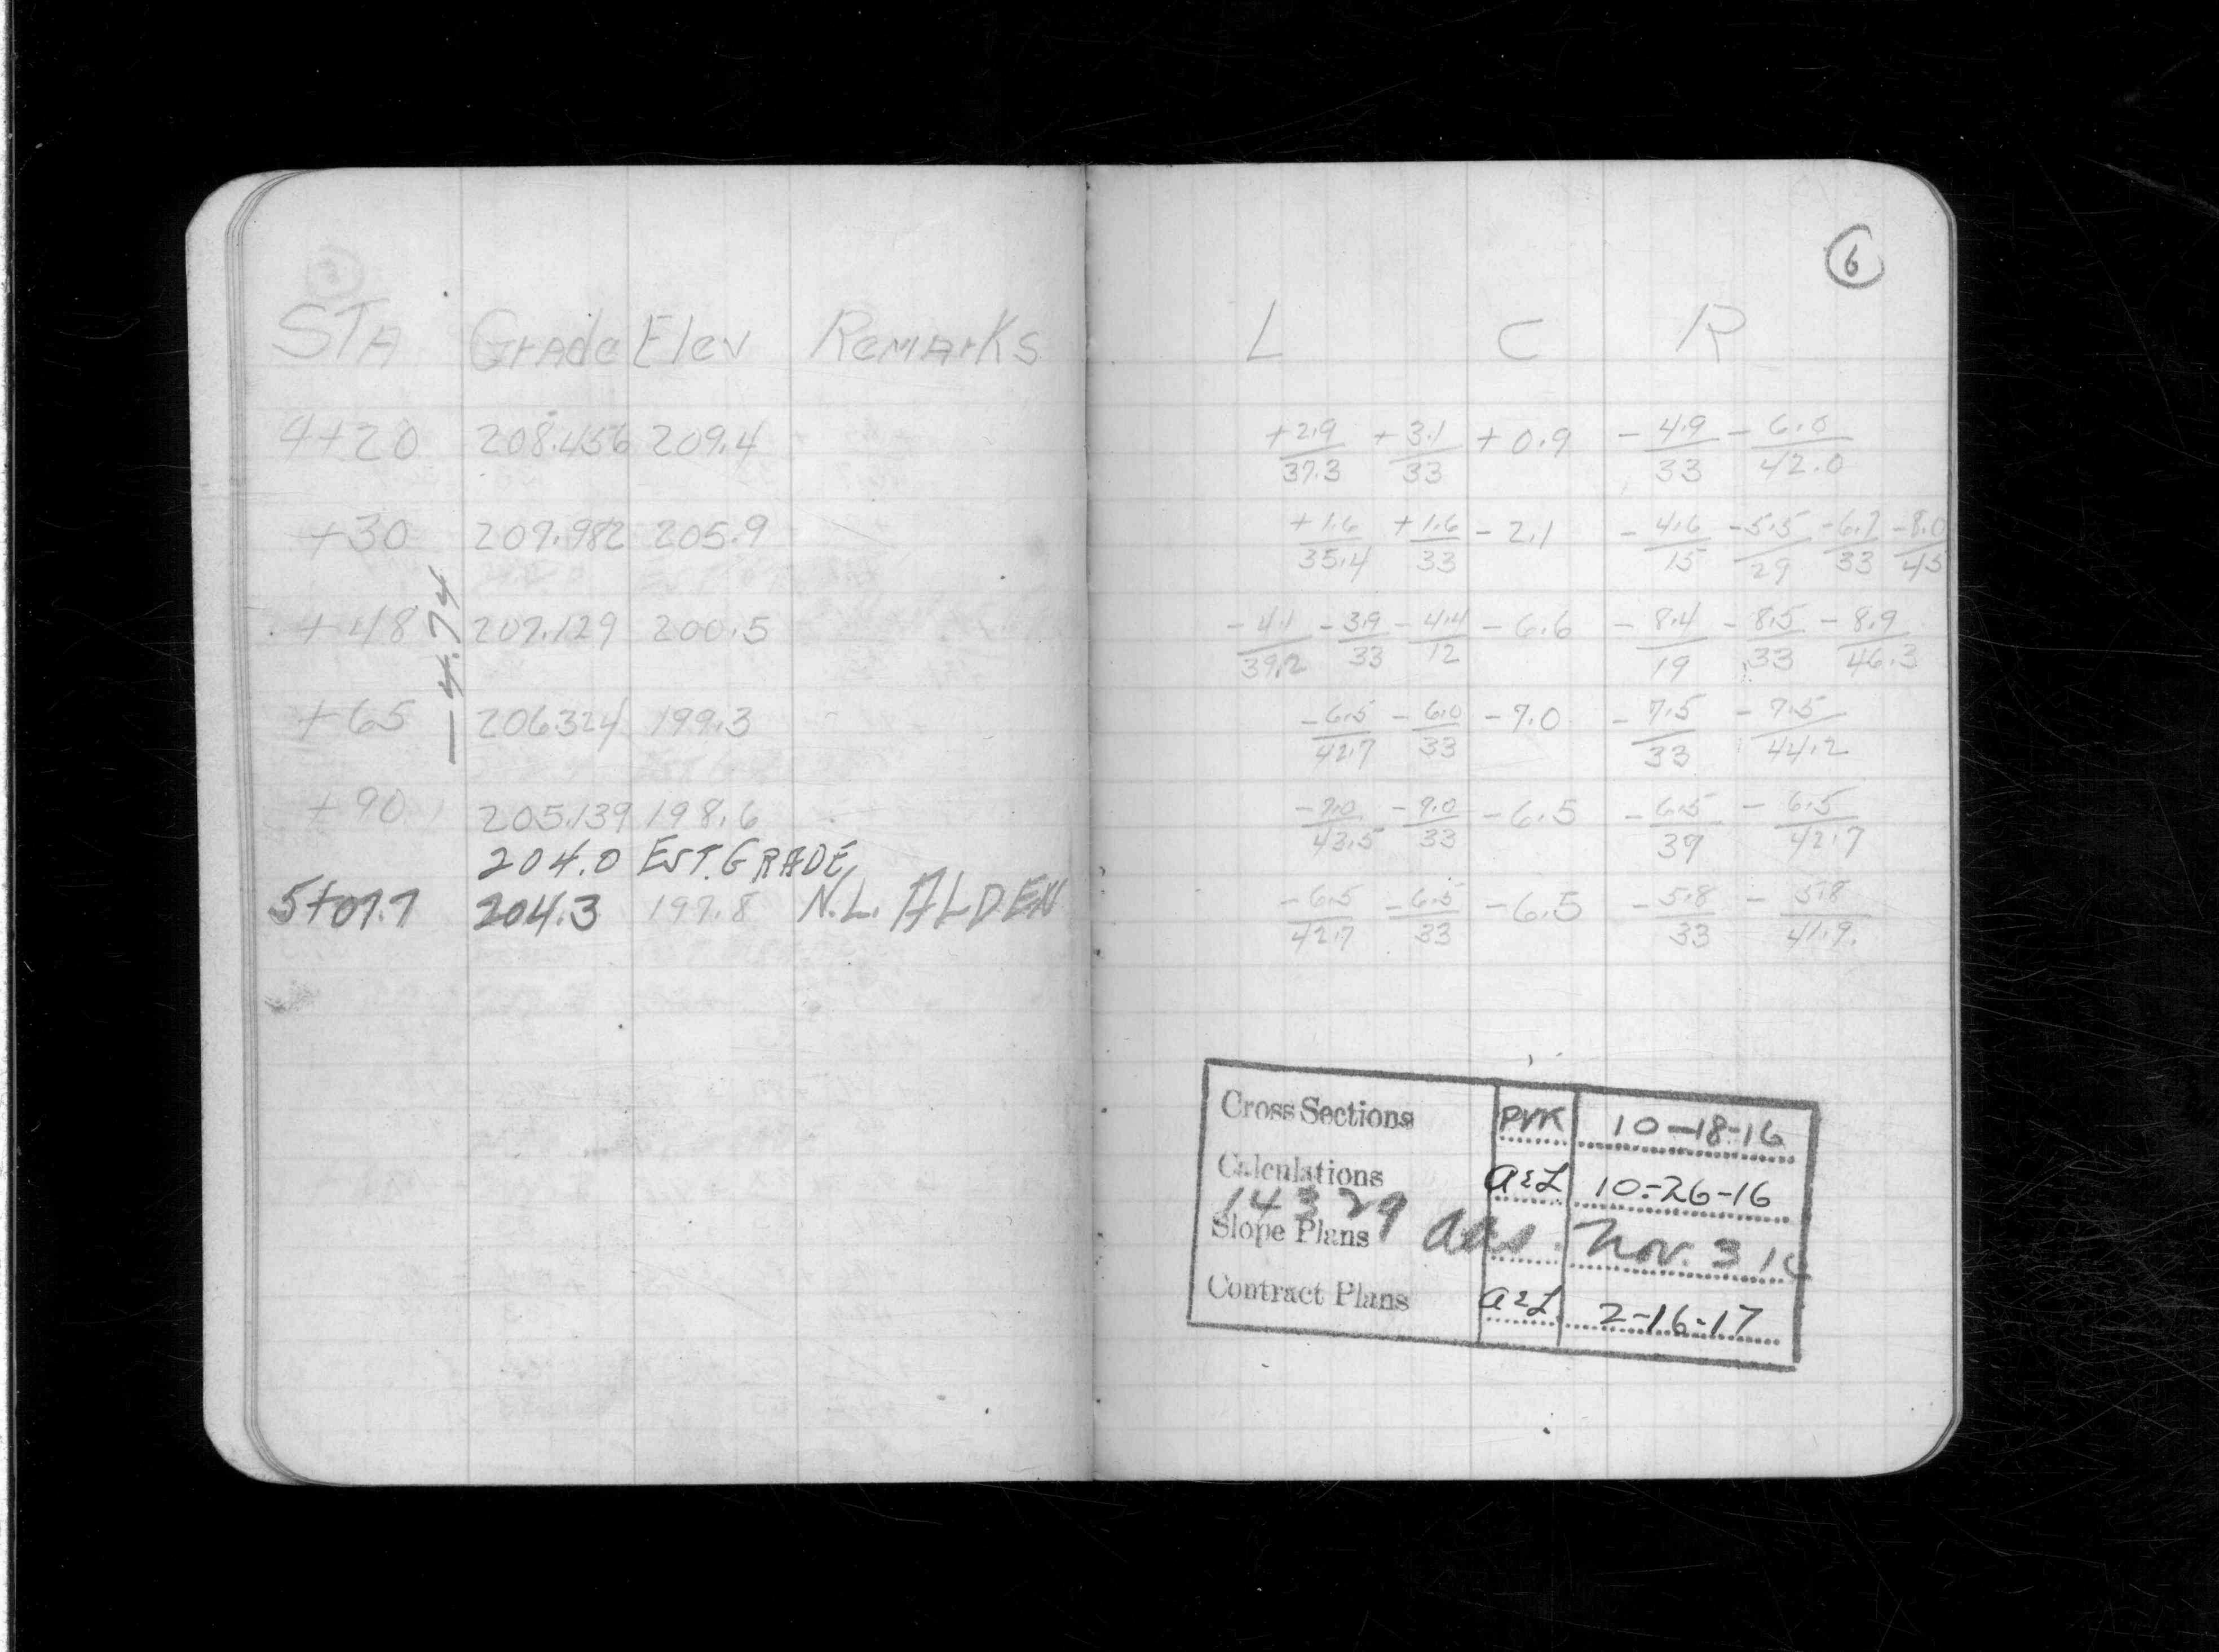 6
STA Grade Elev Remarks L C R
4+20 208.456 209.4 +2.9/37.3 +3.1/33 +0.9 -4.9/33 -6.0/42.0
+30 207.982 205.9 +1.6/35.4 +1.6/33 -2.1 -4.6/15 -5.5/29 -6.7/33 -8.0/45
-4.74
+48 207.129 200.5 -4.1/39.2 -3.9/33 -4.4/12 -6.6 -8.4/19 -8.5/33 -8.9/46.3
+65 206.324 199.3 -6.5/42.7 -6.0/33 -7.0 -7.5/33 -7.5/44.2
+90 205.139 198.6 -7.0/43.5 -7.0/33 -6.5 -6.5/39 -6.5/42.7
204.0 EST. GRADE
5+07.7 204.3 197.8 N.L. ALDEN -6.5/42.7 -6.5/33 -6.5 -5.8/33 -5.8/41.9
Cross Sections PVK 10-18-16
Calculations a&L 10-26-16
14329
Slope Plans aas. Nov. 3 16
Contract Plans a&L 2-16-17